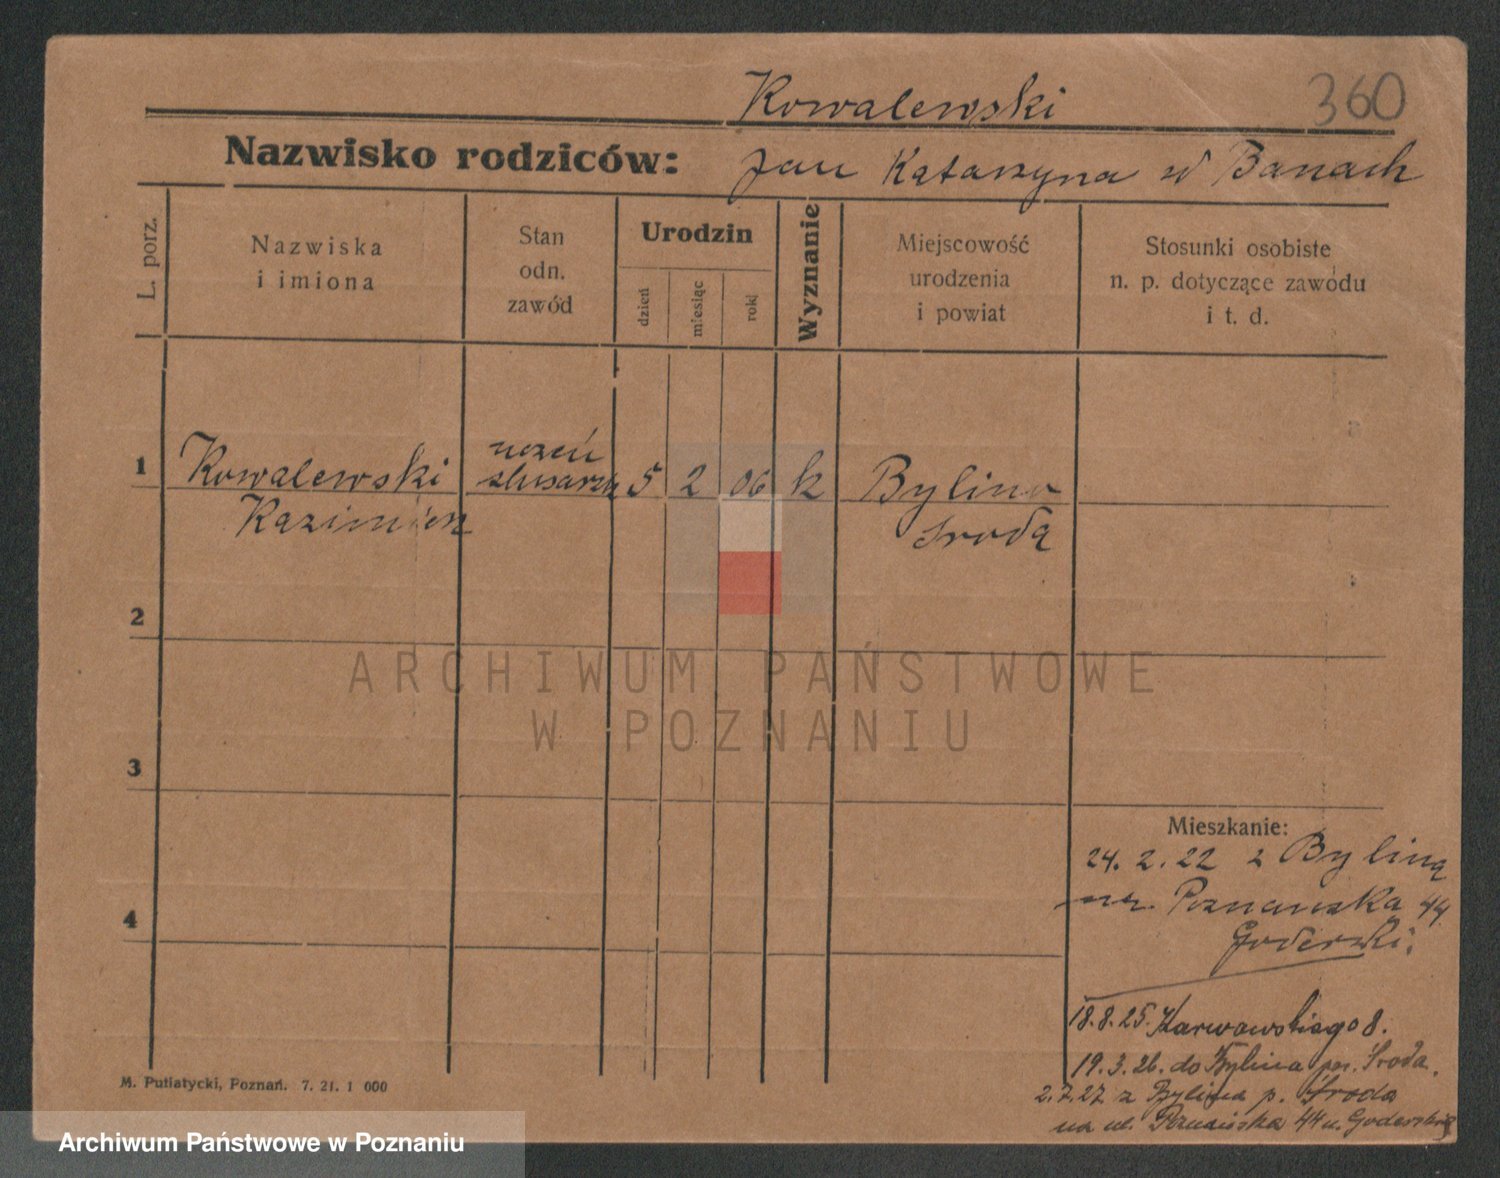 Kowalewski 360
Nazwisko rodziców: Jan Katarzyna z Banach
L. porz.
Nazwiska
i imiona
Stan
odn.
zawód
Urodzin
dzień
miesiąc
rok
Wyznanie
Miejscowość
urodzenia
i powiat
Stosunki osobiste
n. p. dotyczące zawodu
i t. d.
uczeń
1 Kowalewski slusarz 5 2 06 k Bylin
Kazimierz Środa
2
ARCHIWUM PAŃSTWOWE
W POZNANIU
3
Mieszkanie:
24. 2. 22 z Bylina
Poznańska 44
4
Goderski.
18.8.25. Karwowskiego 8.
19.3.26. do Bylina pow. Środa.
2.7.27. z Bylina p. Środa
na ul. Poznańska 44 u. Goderski
M. Putiatycki, Poznań. 7. 21. 1 000
Archiwum Państwowe w Poznaniu